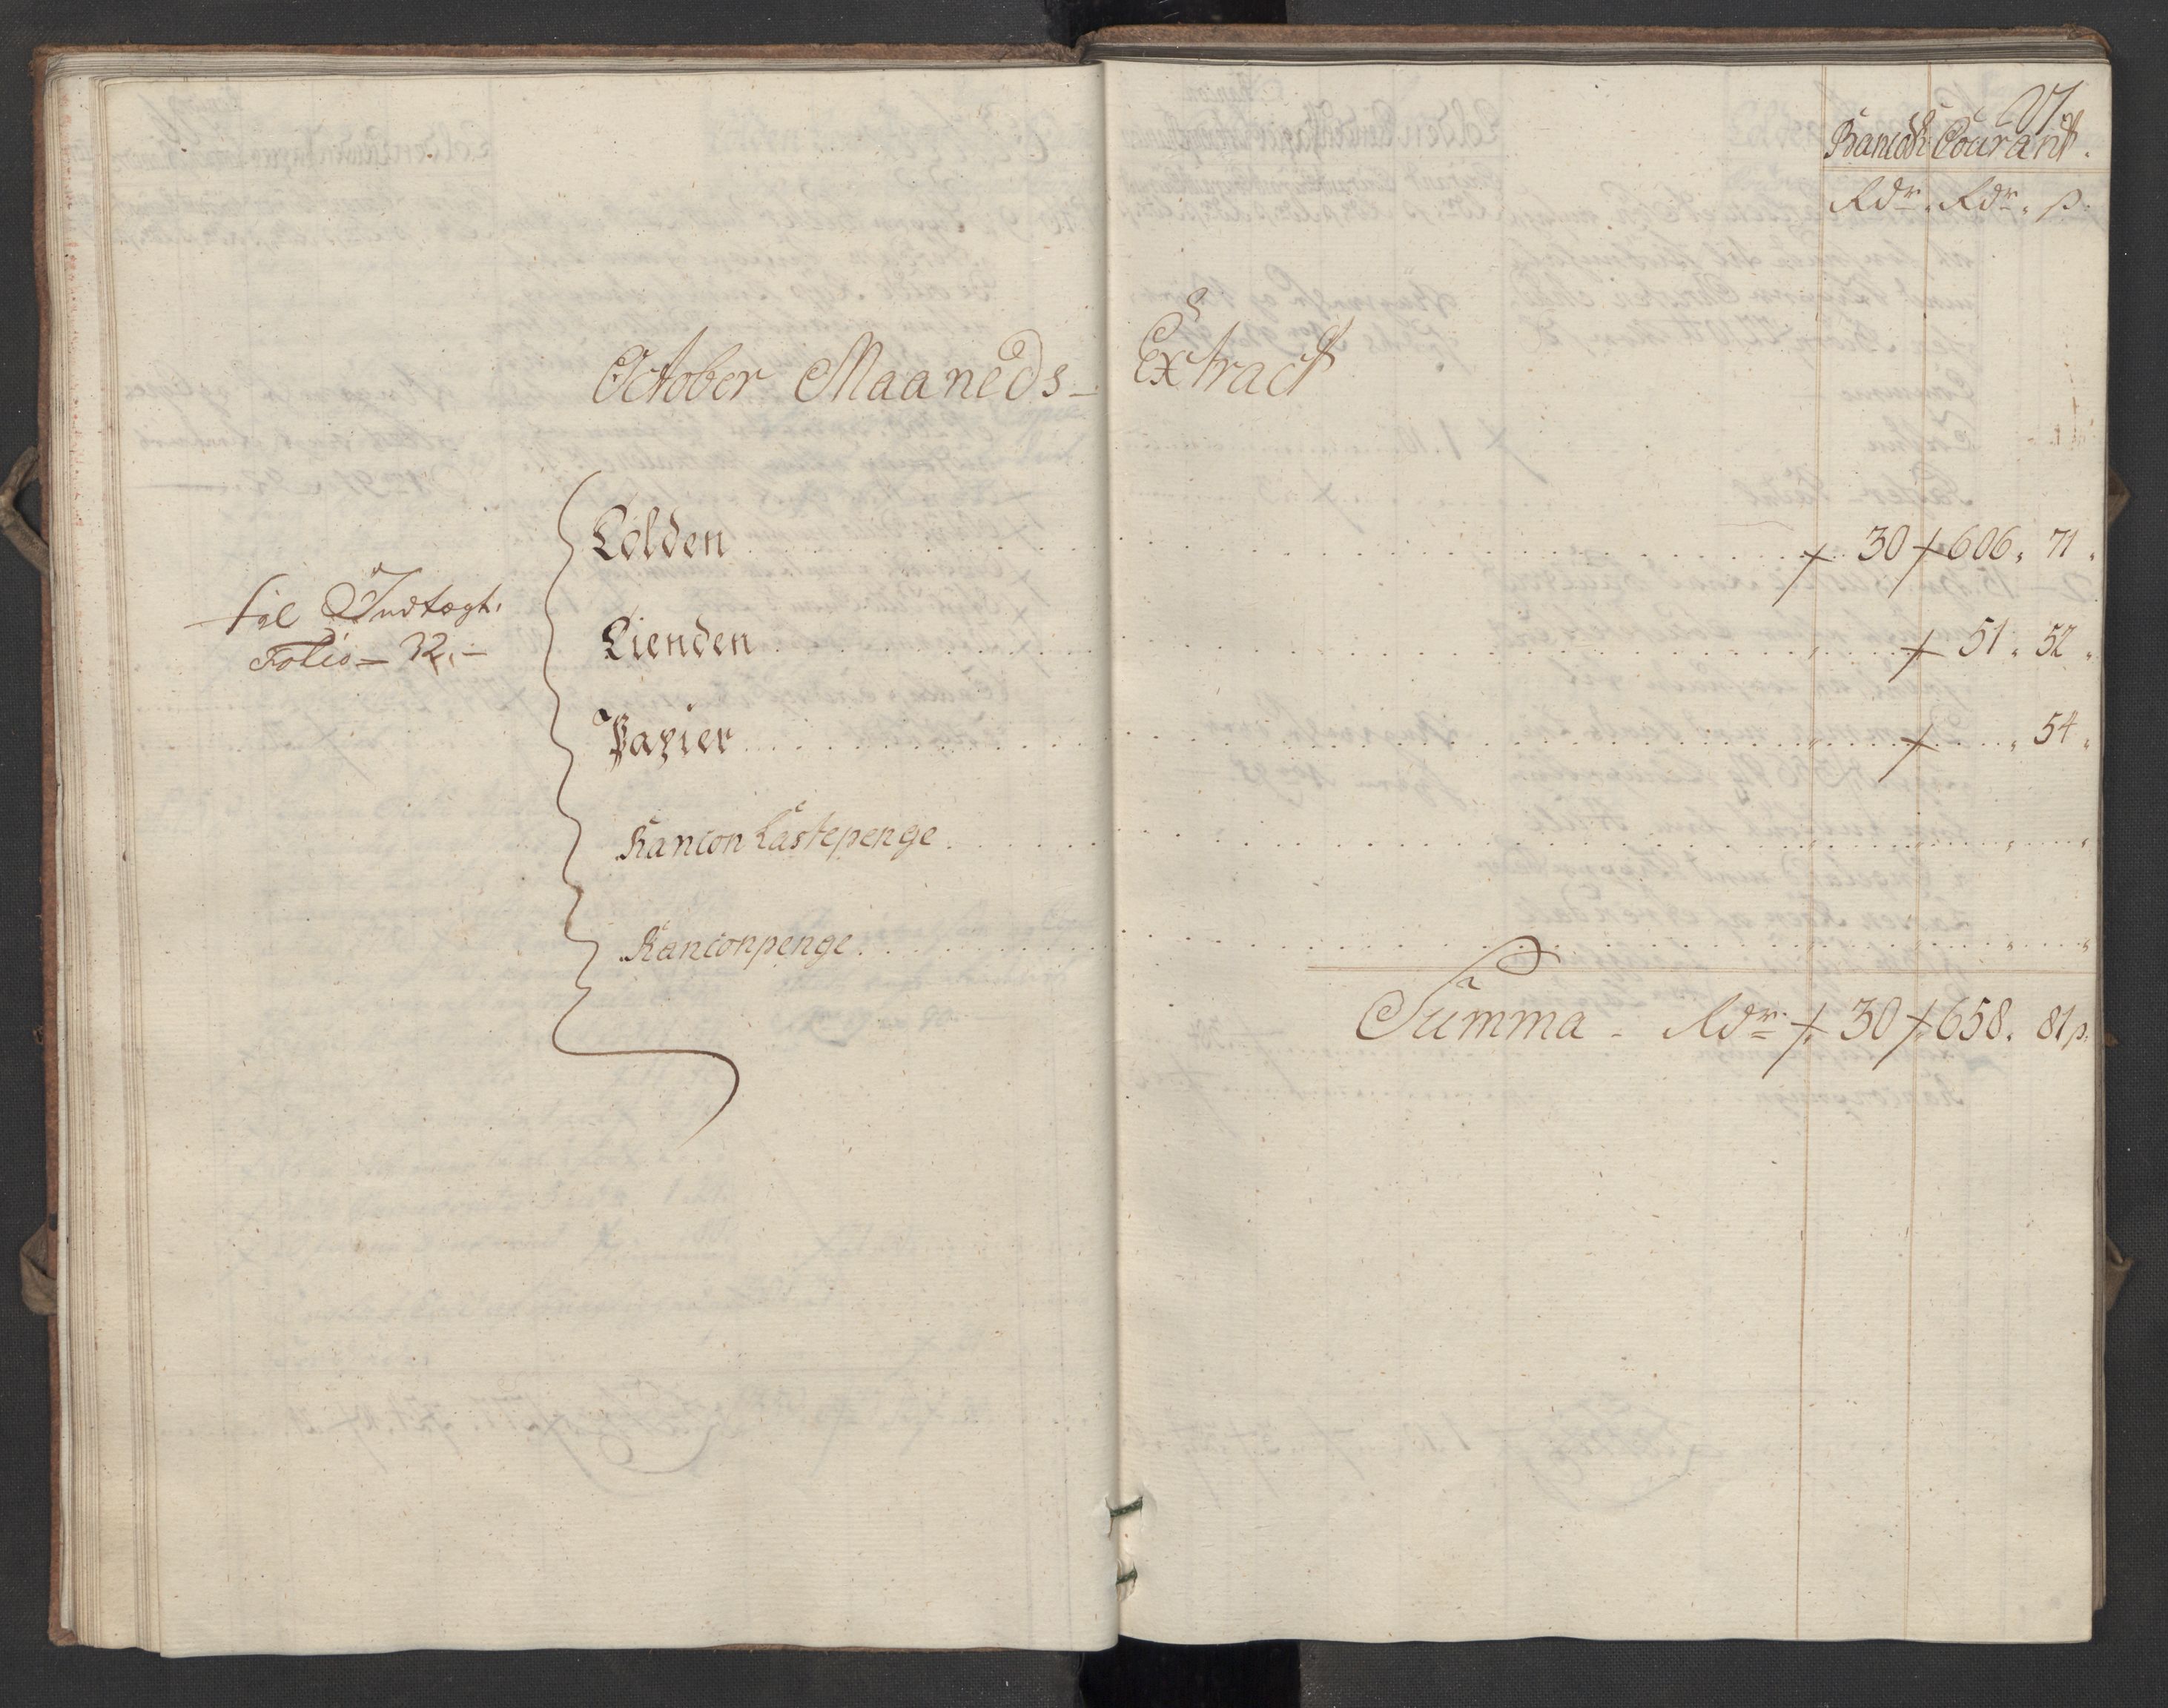 27
Bancoe Courant.
Rdr. Rdr. ß.
October Maaneds- Extract
Tolden . . . 30 606. 71.
Tienden . . . 51. 52.
Papier . . . 54.
Rancon Lastepenge . . .
Ranconpenge . . .
til Indtægt.
Folio- 32.-
Summa - Rdr. 30 658. 81 ß.